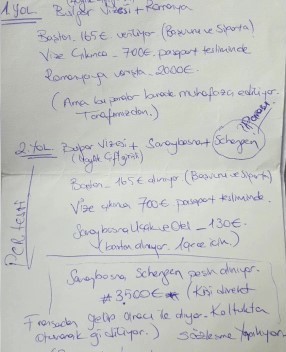 1.YOL Bulgar Vizesi + Romanya
Baştan 165€ veriliyor (Başvuru ve Sigorta)
Vize Çıkınca 700€, pasaport tesliminde
Romanyaya varışta 2000€
(Ama bu paralar burada muhafaza ediliyor.
Tarafımızdan.)
2.YOL Bulgar Vizesi + Saraybosna + Schengen
Baştan 165€ alınıyor (Başvuru ve Sigorta)
Vize çıkınca 700€ pasaport tesliminde.
Saraybosna Uçak ve Otel - 130€
(baştan alınıyor. 1 gece için.)
Saraybosna Schengen pasaportu alınıyor.
# 3500€ # (Kişi direkt
Fransadan gelip aracı ile alıyor. Koltukta
oturarak gidiliyor.) Sözleşme Yapılıyor.